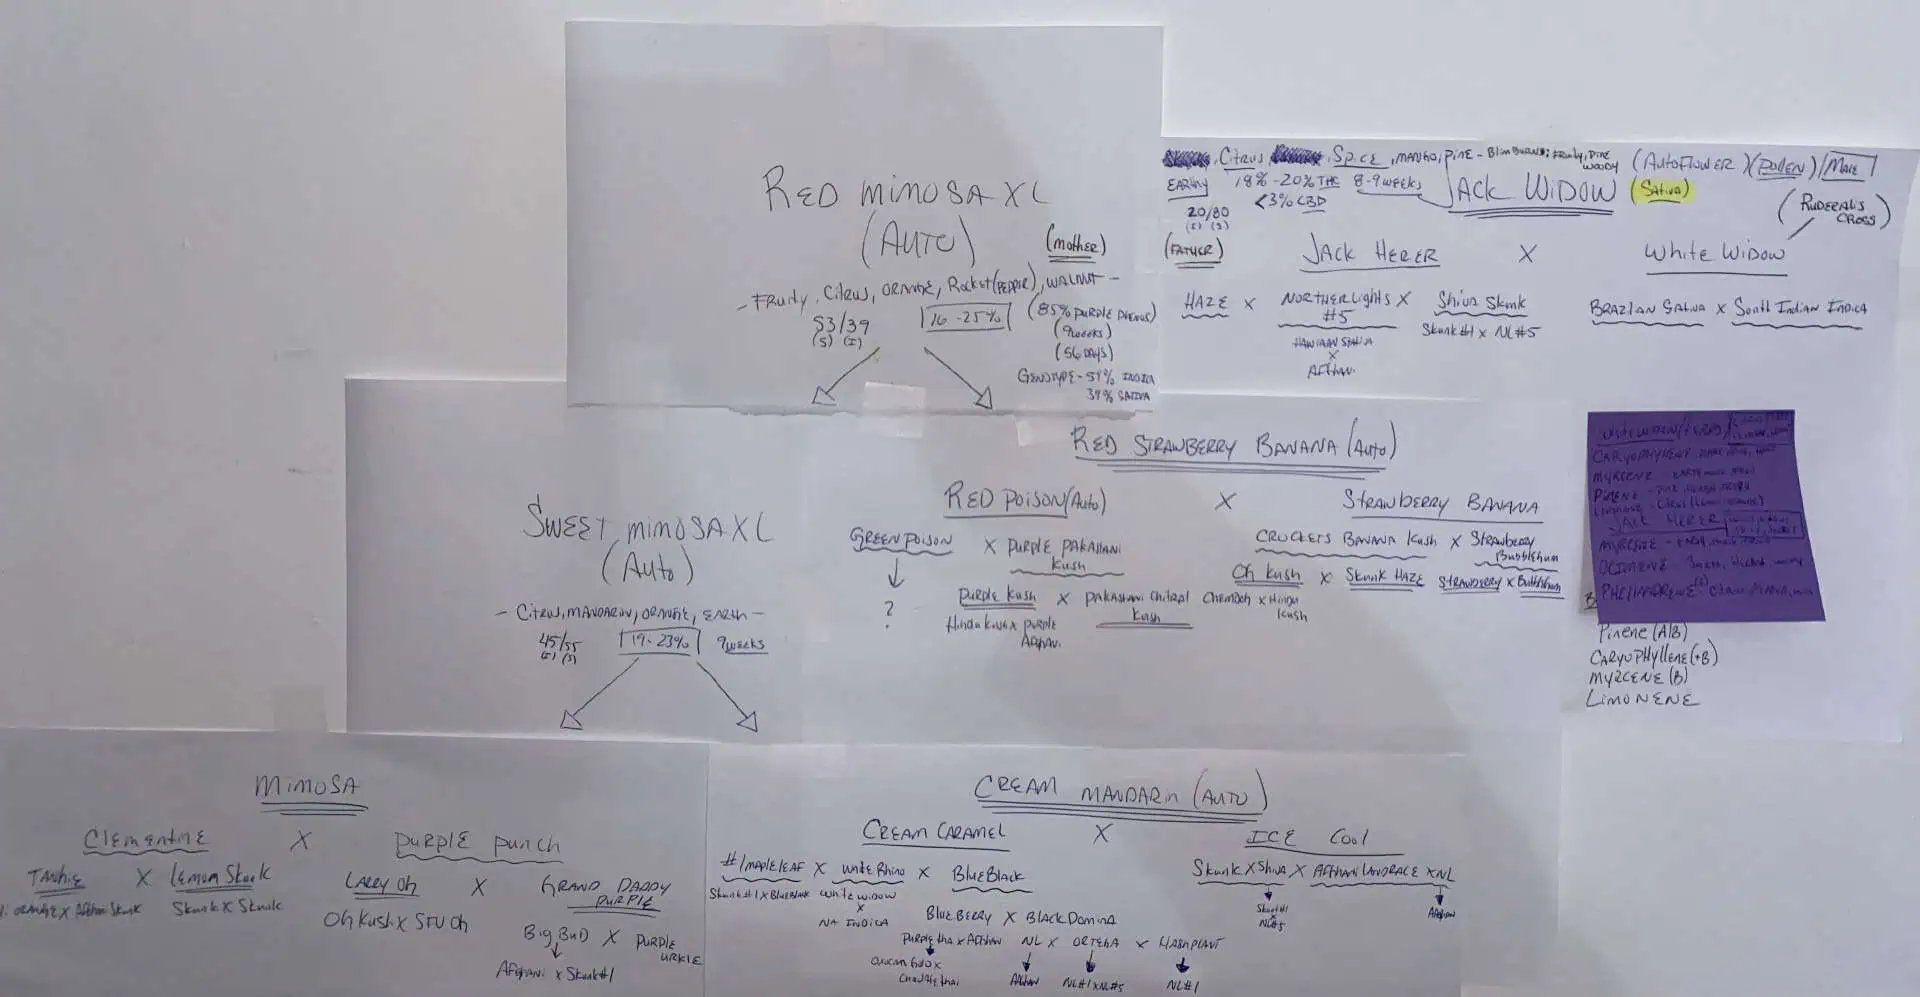 RED MIMOSA XL
(AUTO)
(mother)
- Fruity, Citrus, ORANGE, Rocket (PEPPER), WALNUT -
53/39
(S) (I)
16-25%
(85% PURPLE PHENOS)
(9weeks)
(56 DAYS)
GENOTYPE - 59% INDICA
39% SATIVA
, Citrus, , Spice, MANGO, PINE - Blim Burn: Fruity, PINE
WOODY
(AUTOFLOWER)(POLLEN)/MALE
EARTHY
18%-20% THC
8-9weeks
JACK WIDOW
(Sativa)
<3% CBD
20/80
(I) (S)
(RUDERALIS
CROSS)
(FATHER)
JACK HERER X White Widow
HAZE X NORTHERLIGHTS X Shiva Skunk
#5
Skunk #1 x NL#5
HAWIAAN SATIVA
X
AFGHAN.
BRAZIAN SATIVA X South Indian INDICA
RED STRAWBERRY BANANA (AUTO)
RED POISON (Auto) X STRAWBERRY BANANA
GREEN POISON X PURPLE PAKASTANI
KUSH
?
PURPLE KUSH X PAKASTANI Chitral
Kush
Hindu Kush x PURPLE
AFGHANI
CROCKETS BANANA Kush X STRAWBERRY
Bubblegum
Oh Kush X SKUNK HAZE STRAWBERRY X Bubblegum
Chemdoh x Hindu
Kush
SWEET MIMOSA XL
(Auto)
- Citrus, MANDARIN, ORANGE, EARTH -
45/55
(I) (S)
19-23%
9weeks
CARYOPHYLLENE
MYRCENE
PINENE
JACK HERER
MYRCENE
OCIMENE
Pinene (A/B)
CARYOPHYLLENE (+B)
MYRCENE (B)
LIMONENE
MIMOSA
Clementine X PURPLE Punch
TANGIE X LEMON Skunk
ORANGE X Afghan Skunk
Skunk X Skunk
LARRY Oh X GRAND DADDY
PURPLE
Oh Kush X SFU Oh
Big Bud X PURPLE
URKLE
Afghani x Skunk #1
CREAM MANDARIN (AUTO)
CREAM CARAMEL X ICE Cool
#1 MAPLELEAF X White Rhino X BLUE Black
Skunk #1 x BlueBlack
White widow
X
NA INDICA
BLUEBERRY X BLACK Domina
PURPLE thai x Afghan
NL X ORTEGA X HASHPLANT
Chocolate thai
Afghan
NL#1XNL#5
NL#1
Skunk X Shiva X AFGHANI LANDRACE X NL
Skunk #1
X
NL#5
Afghan